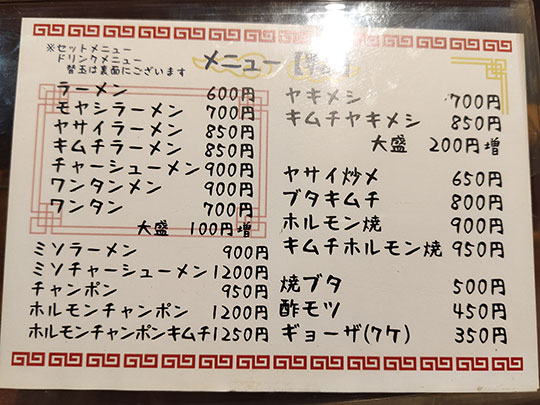 ※セットメニュー
ドリンクメニュー
替玉は裏面にございます
メニュー
ラーメン 600円
モヤシラーメン 700円
ヤサイラーメン 850円
キムチラーメン 850円
チャーシューメン 900円
ワンタンメン 900円
ワンタン 700円
大盛 100円増
ミソラーメン 900円
ミソチャーシューメン 1200円
チャンポン 950円
ホルモンチャンポン 1200円
ホルモンチャンポンキムチ 1250円
ヤキメシ 700円
キムチヤキメシ 850円
大盛 200円増
ヤサイ炒メ 650円
ブタキムチ 800円
ホルモン焼 900円
キムチホルモン焼 950円
焼ブタ 500円
酢モツ 450円
ギョーザ(7ケ) 350円